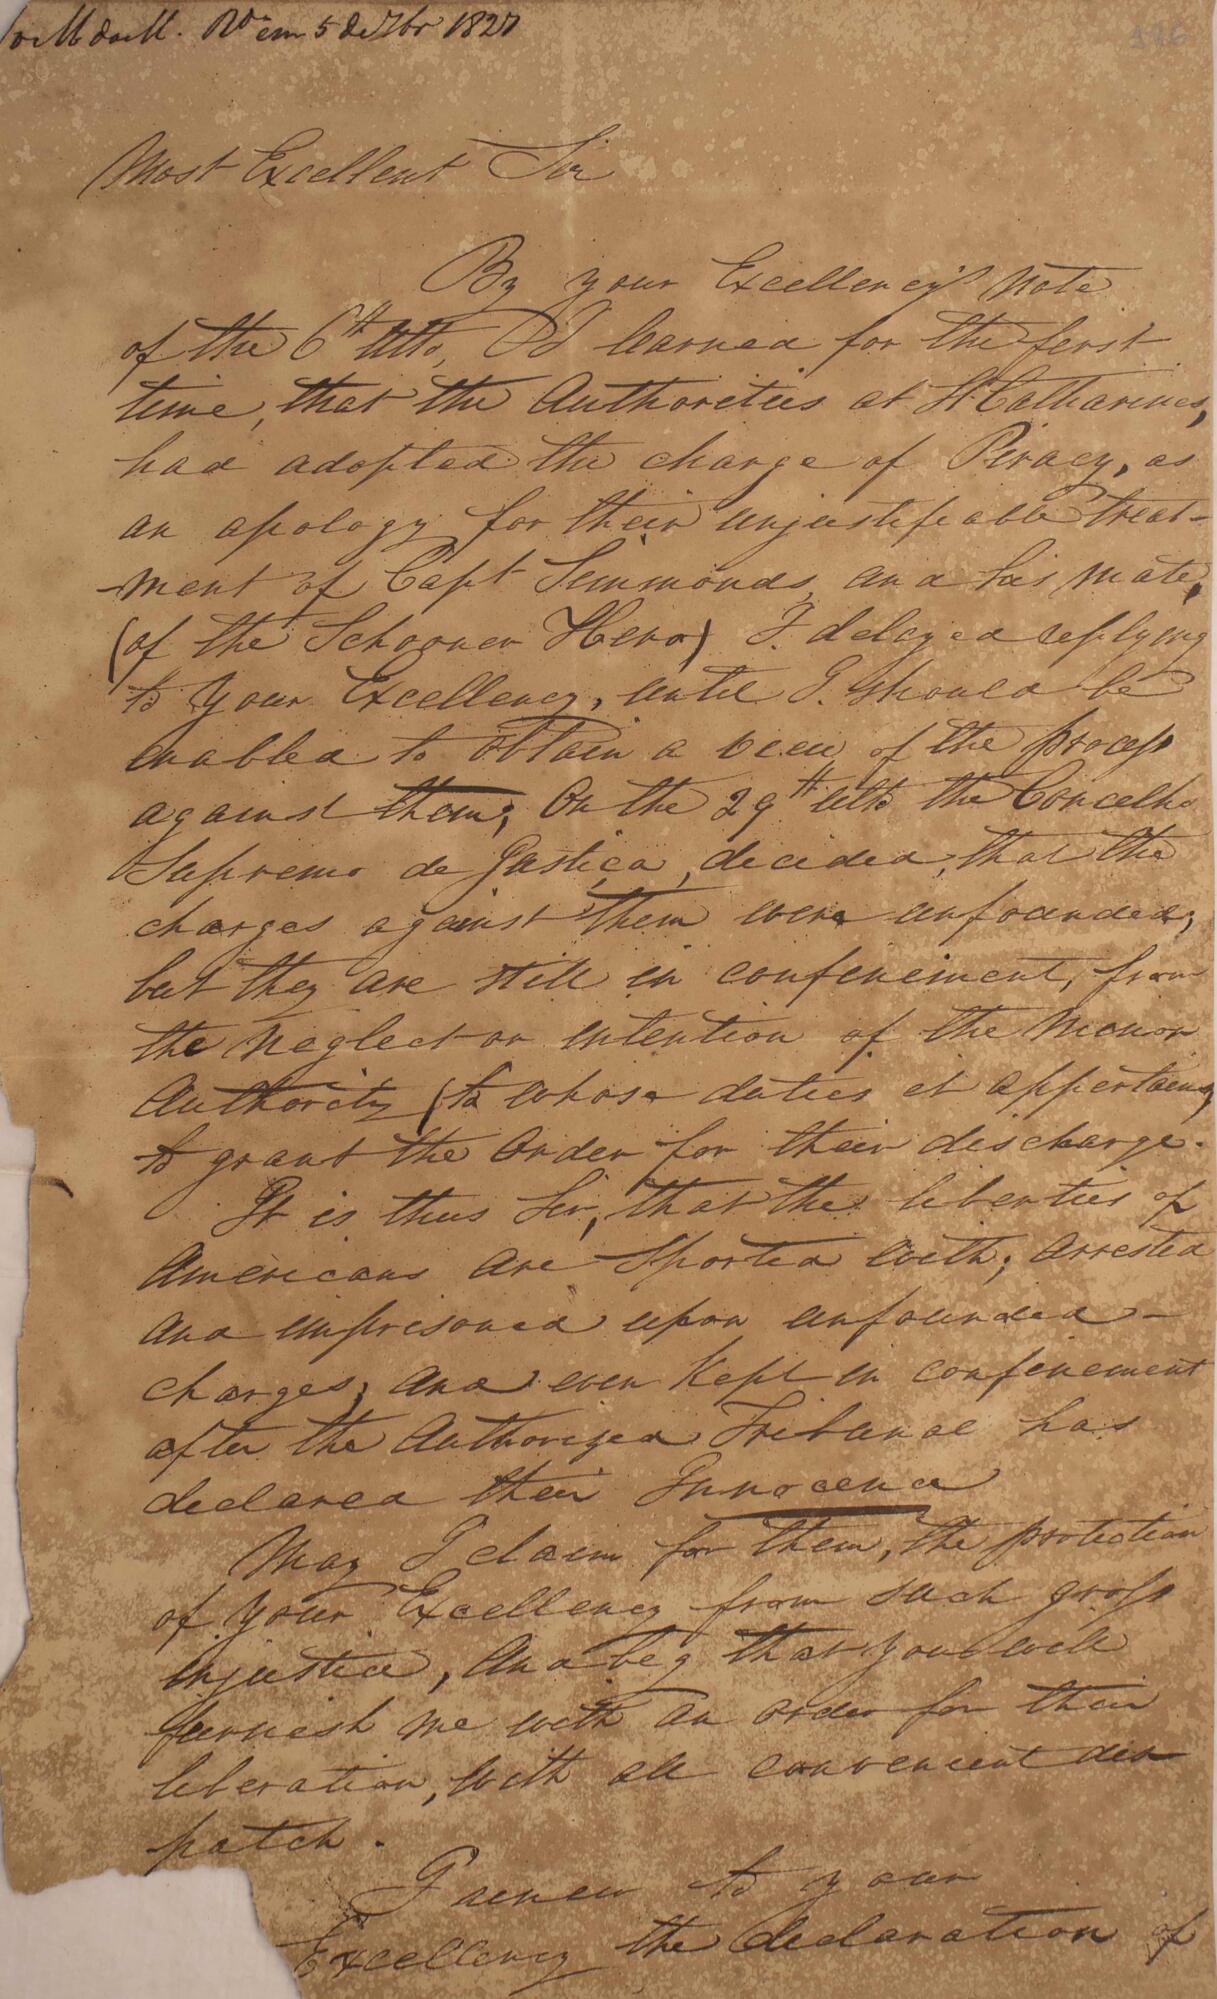 em 5 de 7br 1827
Most Excellent Sir
By your Excellency's Note
of the 6th ulto, I learned for the first
time, that the Authorities at St Catharines,
had adopted the charge of Piracy, as
an apology for their unjustifiable treat-
ment of Capt Simmonds, and his mate,
(of the Schooner Hero) I delayed replying
to your Excellency, until I should be
enabled to obtain a view of the process
against them; On the 29th ulto the Concelho
Supremo de Justica, decided, that the
charges against them were unfounded,
but they are still in confinement, from
the neglect or intention of the Minor
Authority (to whose duties it appertains)
to grant the order for their discharge.
It is thus Sir, that the liberties of
Americans are sported with; arrested
and imprisoned upon unfounded -
charges, and even kept in confinement
after the Authorized Tribunal has
declared their Innocence
May I claim for them, the protection
of your Excellency from such gross
injustice, and beg that you will
furnish me with an order for their
liberation, with all convenient dis
patch.
I renew to your
Excellency the declaration of